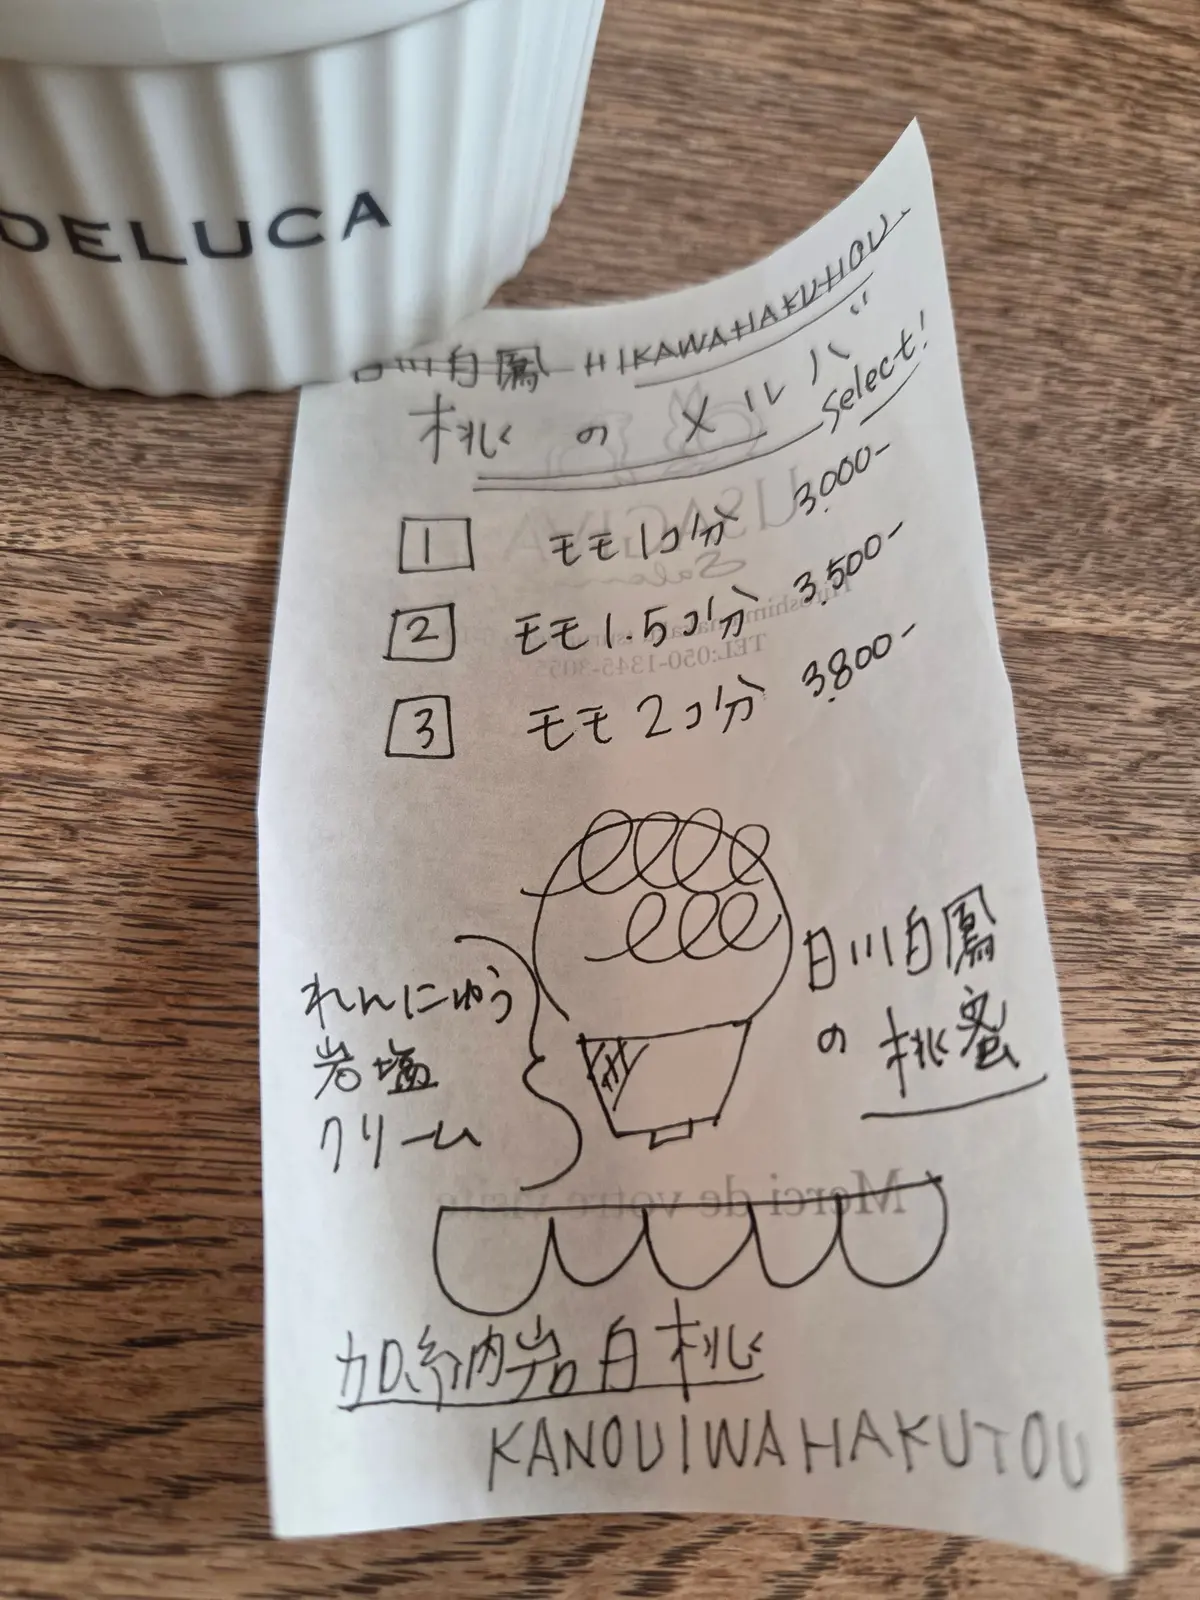 DELUCA
日川白鳳 HIKAWAHAKUHOU
桃のメルバ Select!
1 モモ1コ分 3.000-
2 モモ1.5コ分 3.500-
3 モモ2コ分 3.800-
れんにゅう
岩塩
クリーム
日川白鳳
の桃蜜
加納岩白桃
KANOUIWAHAKUTOU
USAGIYA
Salon
TEL:050-1345-3055
Merci de votre visite